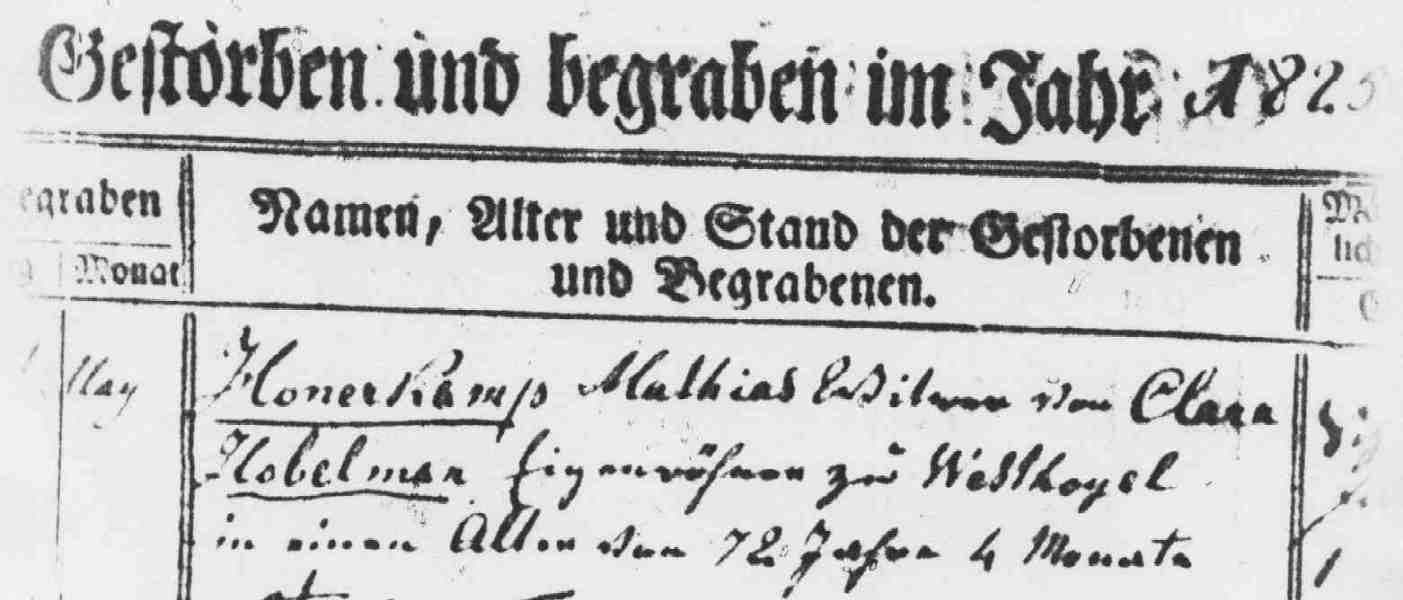 Gestorben und begraben im Jahr 182
egraben
Namen, Alter und Stand der Gestorbenen
Monat
und Begrabenen.
May Honerkamp Mathias Witwer von Clara
Hobelman Eigenwöhner zu Westhoyel
in einen Alter von 72 Jahre 4 Monate